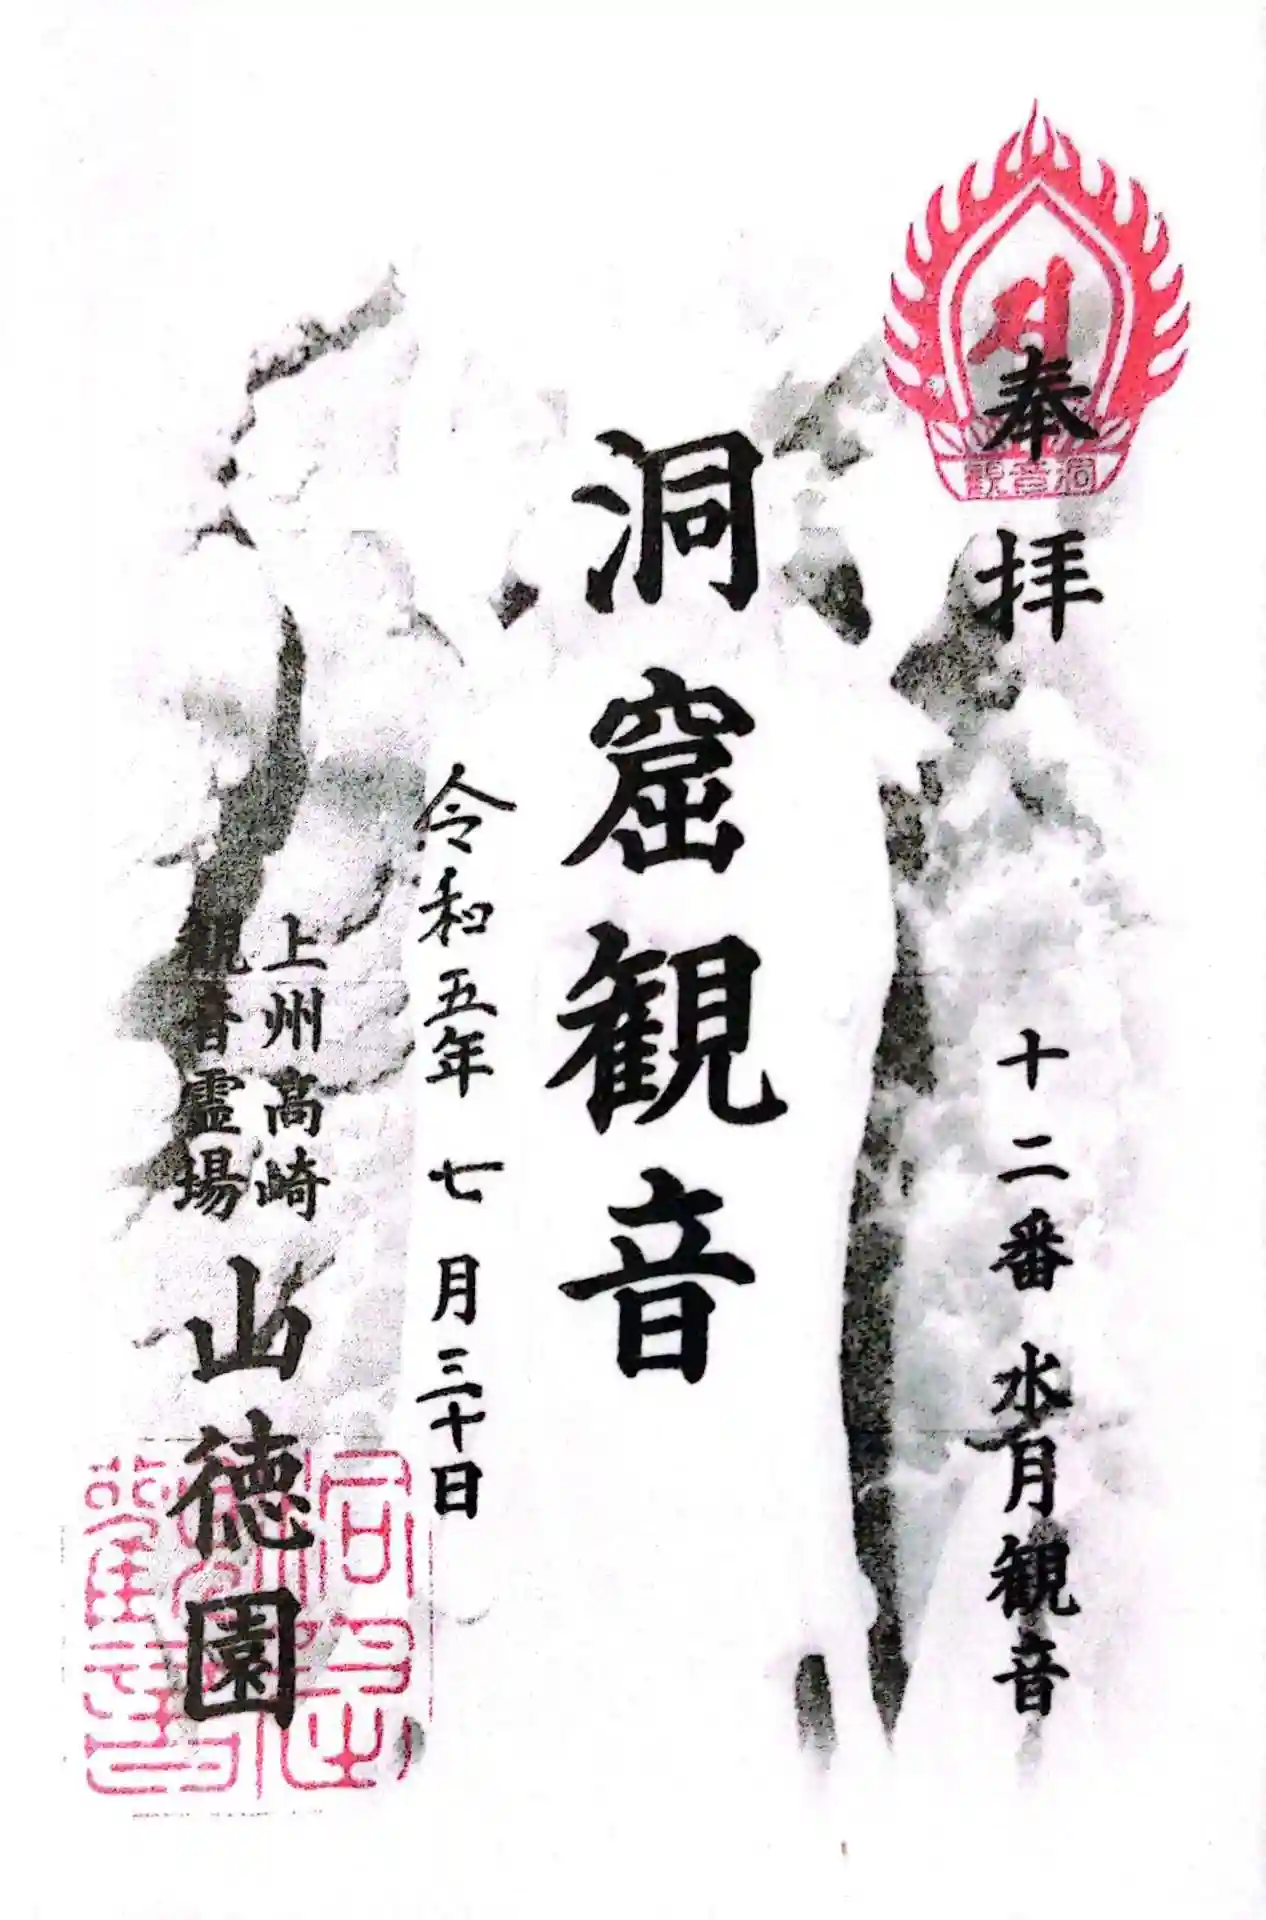 奉拝
洞音観
十二番水月観音
洞窟観音
令和五年七月三十日
上州高崎
観音霊場
山徳園